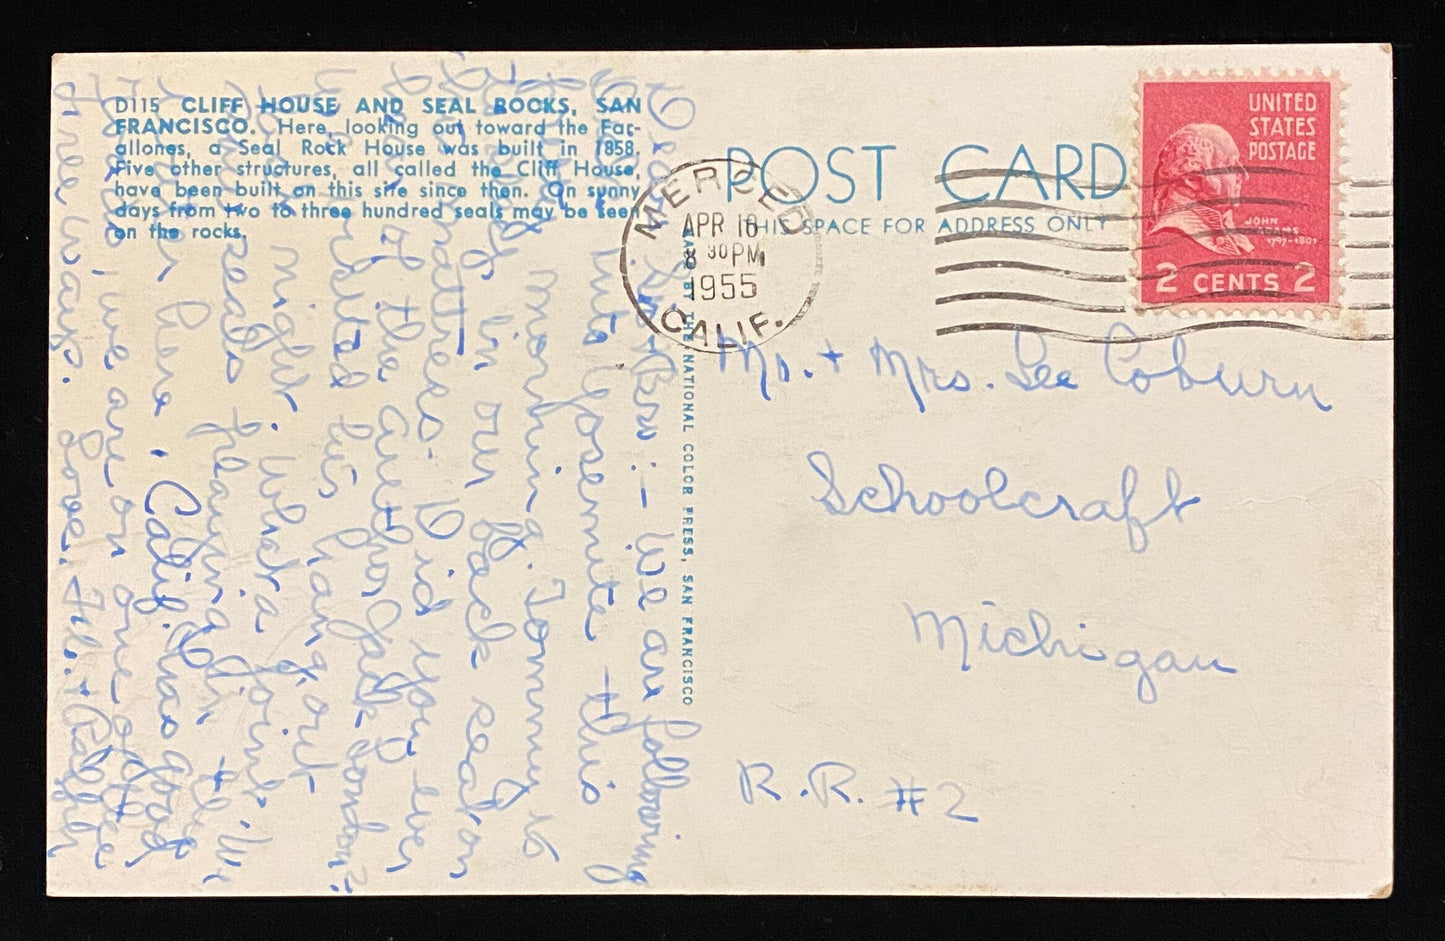 D115 CLIFF HOUSE AND SEAL ROCKS, SAN
FRANCISCO. Here, looking out toward the Far-
allones, a Seal Rock House was built in 1858.
Five other structures, all called the Cliff House,
have been built on this site since then. On sunny
days from two to three hundred seals may be seen
on the rocks.
We are following
into Yosemite this
morning. Tommy is
in our back seat on
mattress. Did you ever
of the author Jack London?
visited his hang out
night. What a joint. We
seals playing in the
Calif. has good
we are on one of the
free ways. Love,
MADE BY THE NATIONAL COLOR PRESS, SAN FRANCISCO
POST CARD
THIS SPACE FOR ADDRESS ONLY
MERCED
APR 18
8 30 PM
1955
CALIF.
UNITED
STATES
POSTAGE
JOHN
ADAMS
1797-1801
2 CENTS 2
Mr. + Mrs. Lee Coburn
Schoolcraft
Michigan
R.R. #2